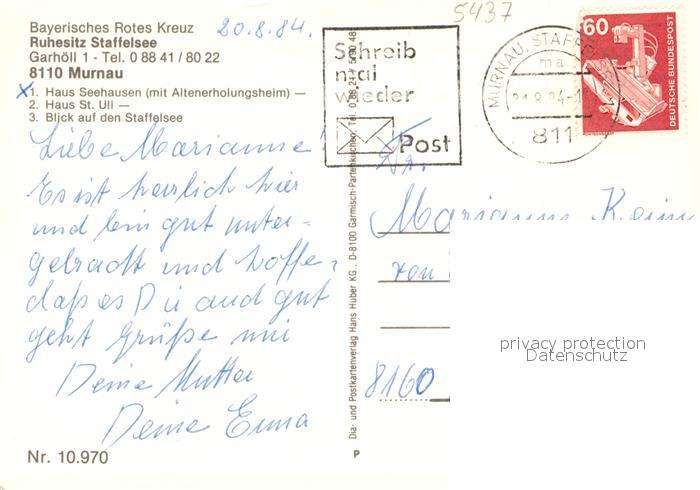 Bayerisches Rotes Kreuz
Ruhesitz Staffelsee
Garhöll 1 - Tel. 0 88 41 / 80 22
8110 Murnau
20.8.84.
x1. Haus Seehausen (mit Altenerholungsheim) —
2. Haus St. Uli —
3. Blick auf den Staffelsee
Liebe Marianne!
Es ist herrlich hier
und bin gut unter-
gebracht und hoffe,
daß es Dir auch gut
geht Grüße mir
Deine Mutter
Deine Erna
Nr. 10.970
Dia- und Postkartenverlag Hans Huber KG., D-8100 Garmisch-Partenkirchen, Tel.
P
5437
Schreib
mal
wieder
Post
MURNAU, STAFFELSEE
ma
21.8.84-1
811
60
DEUTSCHE BUNDESPOST
Fr.
Marianne
von
8160
privacy protection
Datenschutz